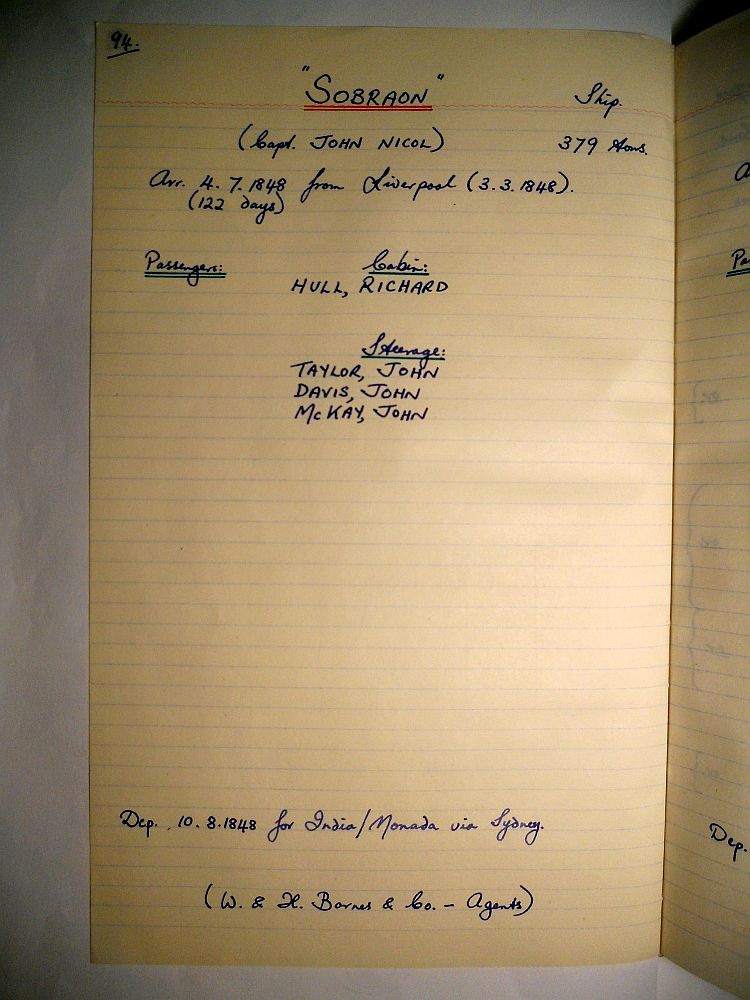 94.
"SOBRAON" Ship.
(Capt. JOHN NICOL) 379 tons.
Arr. 4.7.1848 from Liverpool (3.3.1848).
(122 days)
Passengers: Cabin:
HULL, RICHARD
Steerage:
TAYLOR, JOHN
DAVIS, JOHN
McKAY, JOHN
Dep. 10.8.1848 for India/Monada via Sydney.
(W. & H. Barnes & Co. - Agents)
Dep.